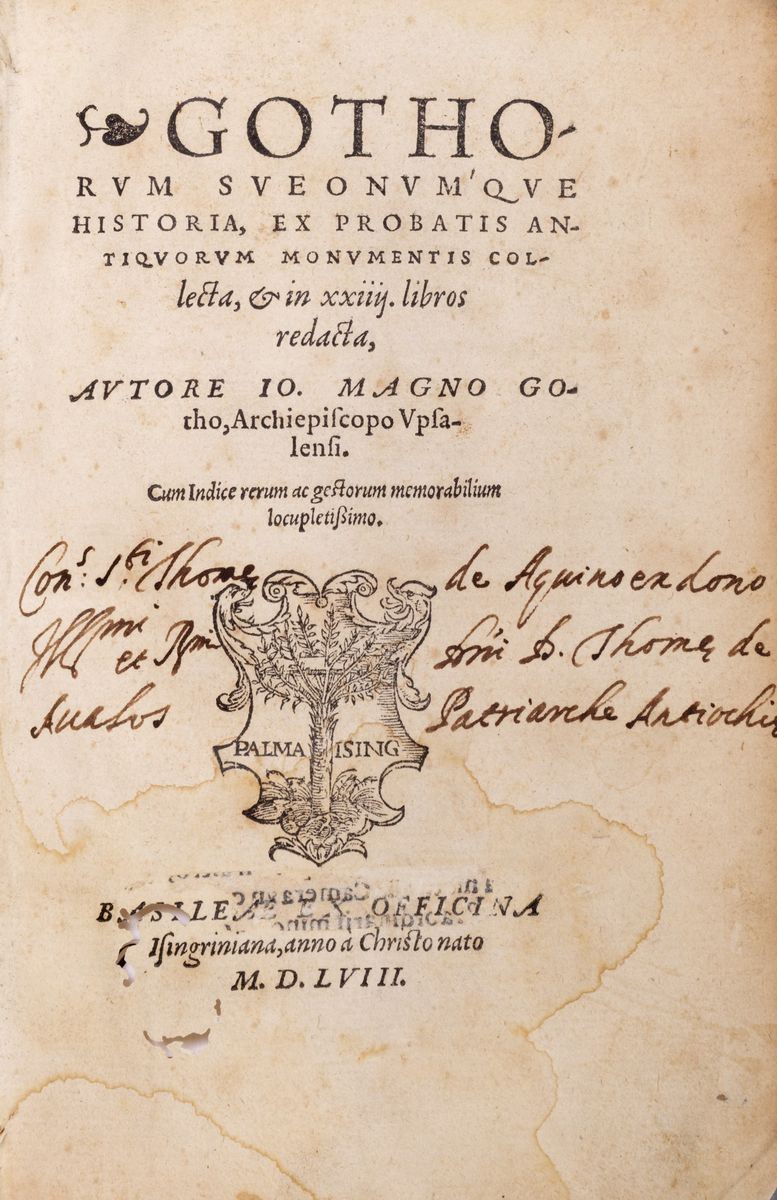 GOTHO-
RVM SVEONVM'QVE
HISTORIA, EX PROBATIS AN-
TIQVORVM MONVMENTIS COL-
lecta, & in xxiiij. libros
redacta,
AVTORE IO. MAGNO GO-
tho, Archiepiſcopo Vpſa-
lenſi.
Cum Indice rerum ac gestorum memorabilium
locupletißimo.
Con.s S.ti Thomę de Aquino ex dono
Ill.mi et R.mi Dñi D. Thomę de
Aualos Patriarche Antiochię
PALMA ISING
BASILEAE EX OFFICINA
Iſingriniana, anno a Christo nato
M. D. LVIII.